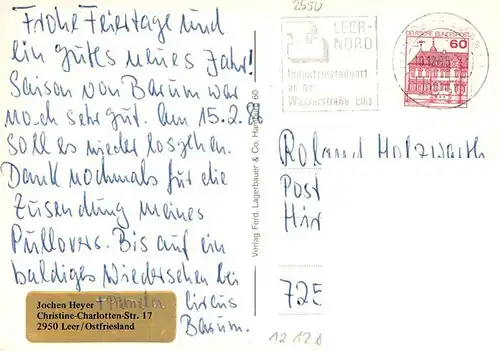 Frohe Feiertage und
ein gutes neues Jahr!
Saison von Barum war
noch sehr gut. Am 15.2.8
soll es wieder losgehen.
Dank nochmals für die
Zusendung meines
Pullovers. Bis auf ein
baldiges Wiedersehen bei
Circus
Barum.
Jochen Heyer + Pamela
Christine-Charlotten-Str. 17
2950 Leer/Ostfriesland
Verlag Ferd. Lagerbauer & Co. Hamburg 60
2950
LEER-
NORD
Industriestandort
an der
Wasserstraße Ems
DEUTSCHE BUNDESPOST
60
Roland Holzwarth
Post
Hir
725
12 12 8